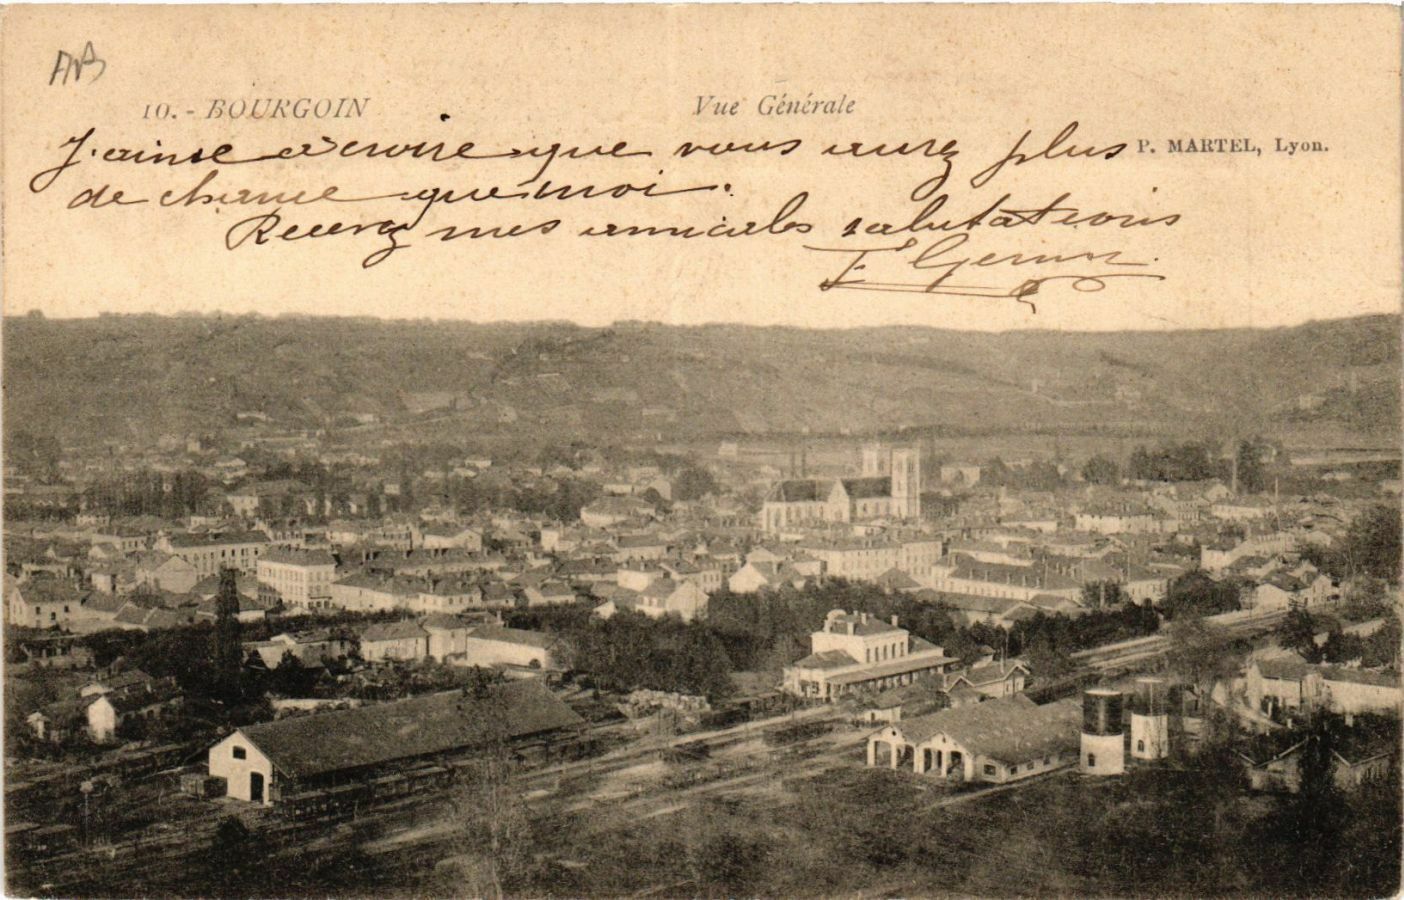 10. - BOURGOIN
Vue Générale
P. MARTEL, Lyon.
J'aime à croire que vous aurez plus
de chance que moi.
Recevez mes amicales salutations